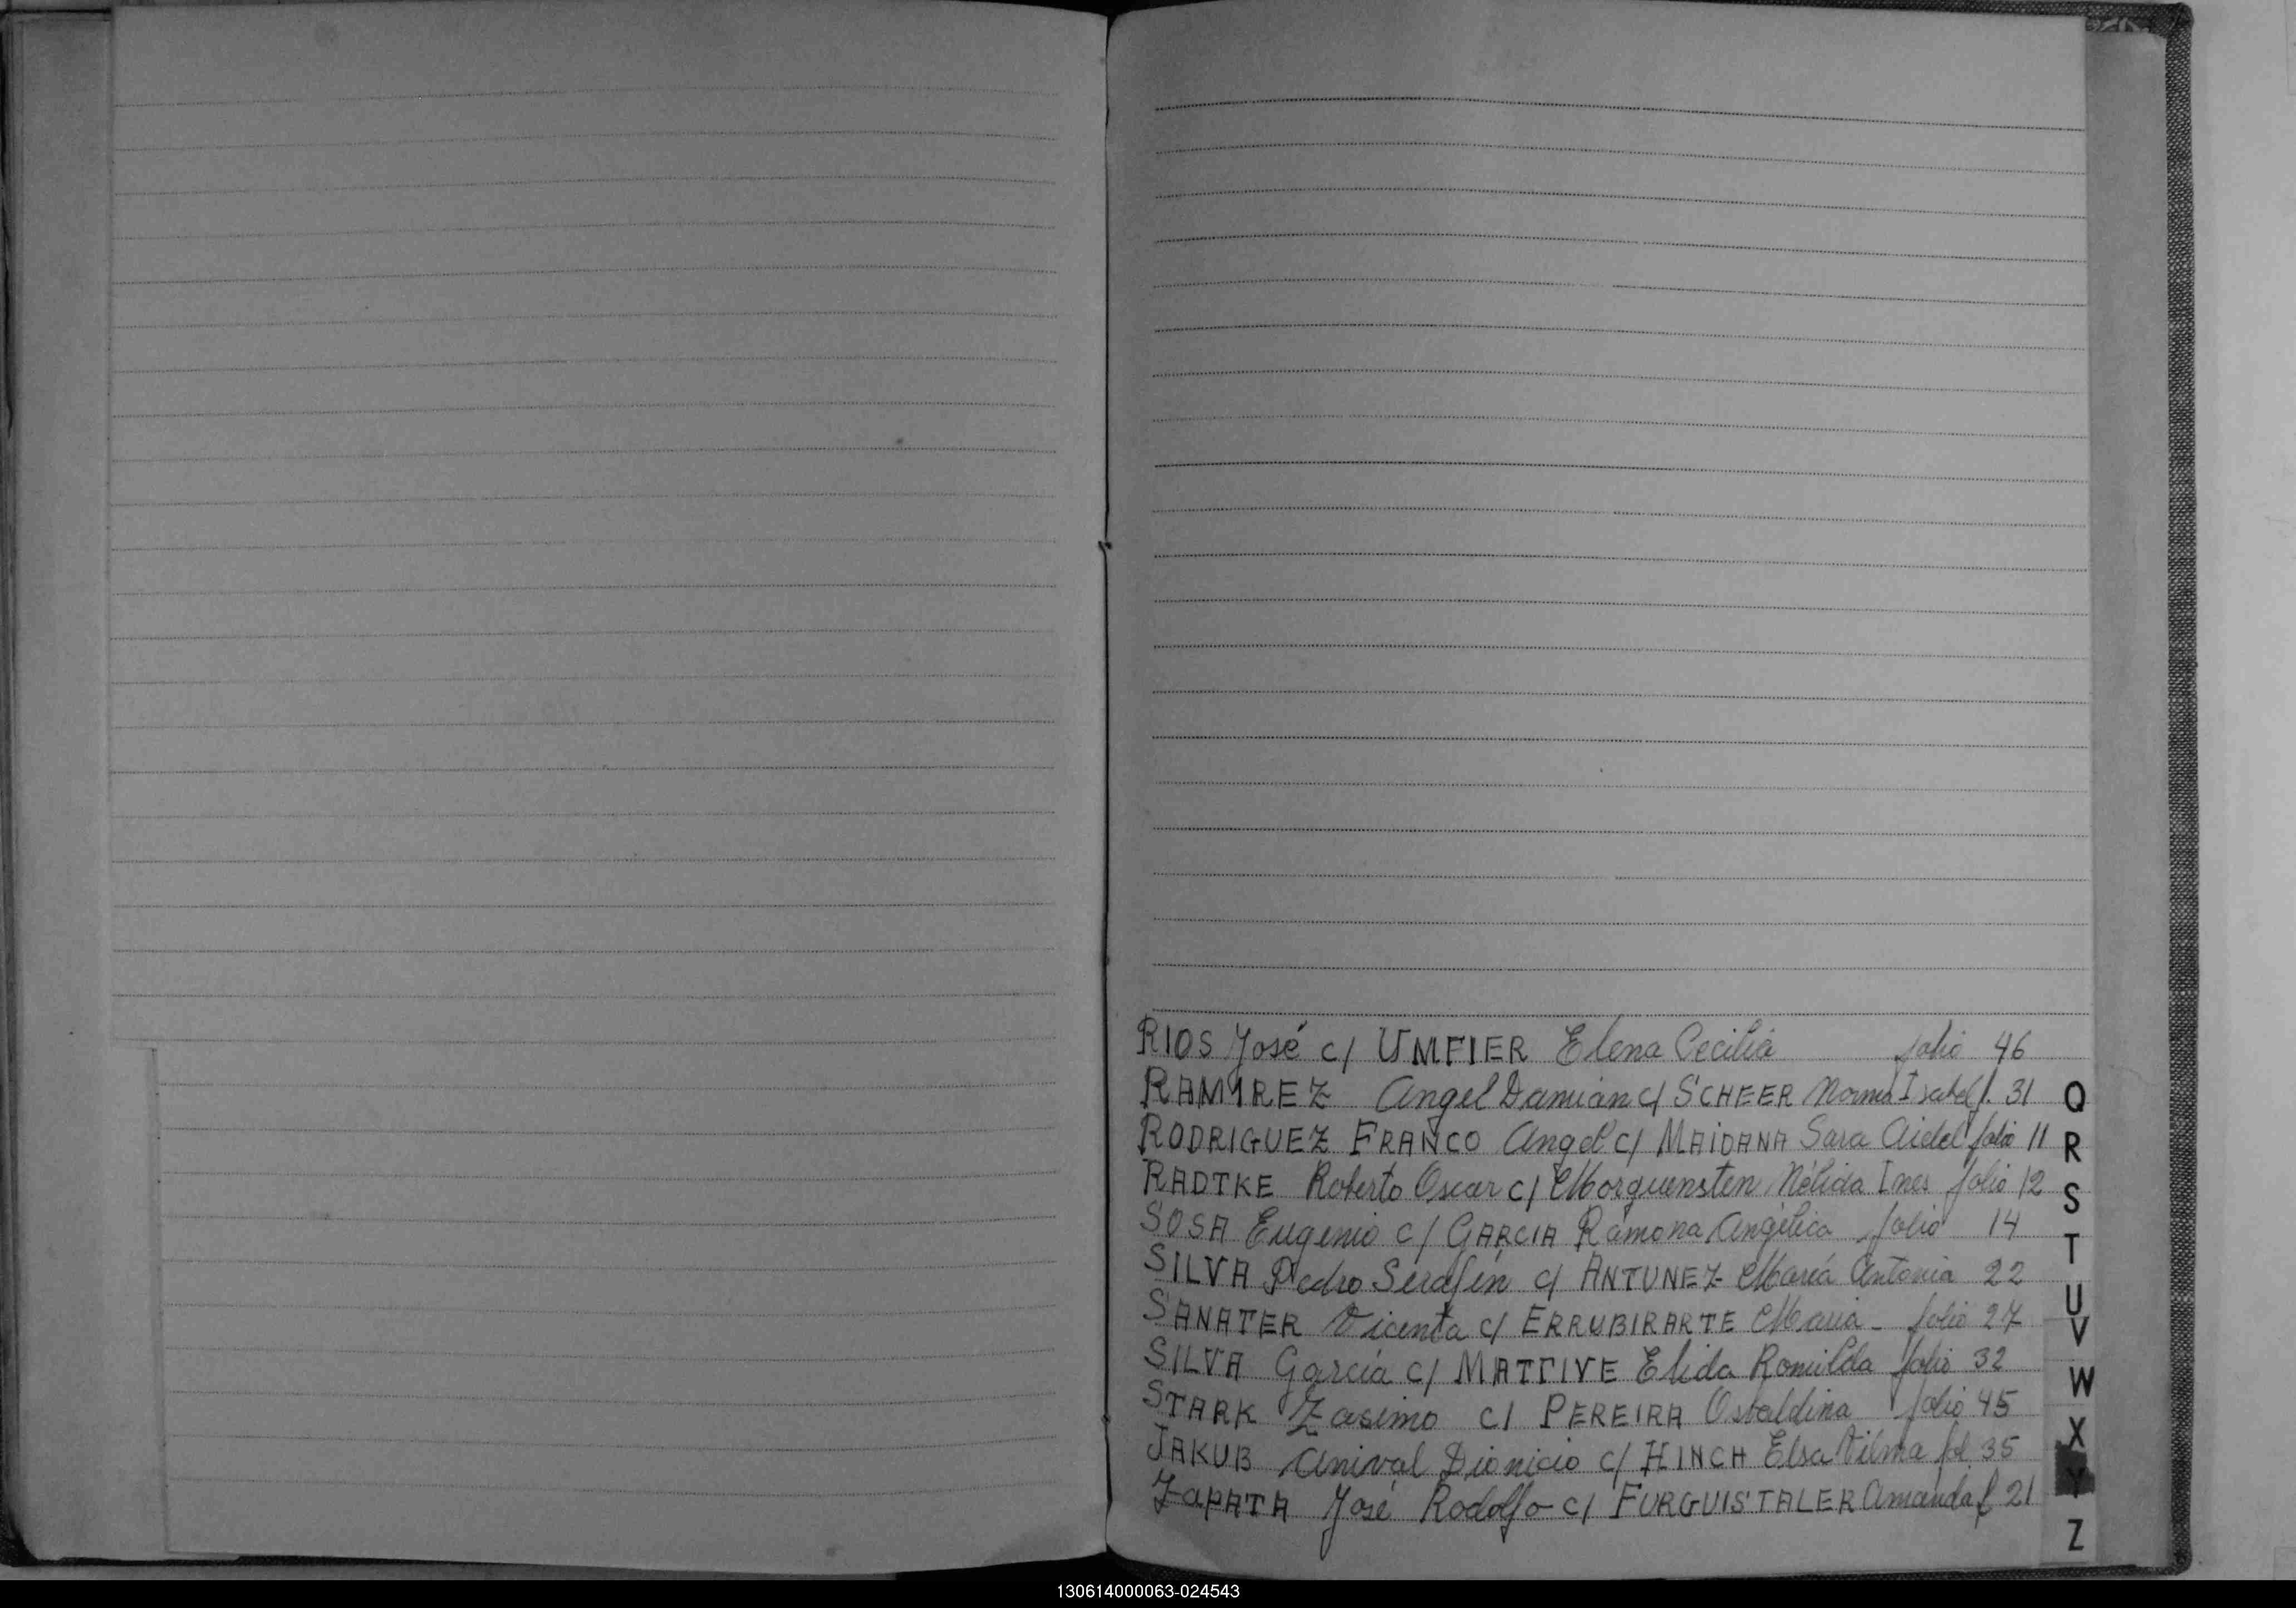 RIOS José c/ UMFIER Elena Cecilia folio 46
RAMIREZ Angel Damian c/ SCHEER Norma Isabel f. 31
RODRIGUEZ FRANCO Angel c/ MAIDANA Sara Aidel folio 11
RADTKE Roberto Oscar c/ Morguensten Nélida Ines folio 12
SOSA Eugenio c/ GARCIA Ramona Angélica folio 14
SILVA Pedro Serafín c/ ANTUNEZ María Antonia 22
SANATER Vicenta c/ ERRUBIRARTE Maria - folio 27
SILVA García c/ MATTIVE Elida Romilda folio 32
STARK Zasimo c/ PEREIRA Osbaldina folio 45
JAKUB Anival Dionicio c/ HINCH Elsa Vilma fol. 35
ZapATA José Rodolfo c/ FURGUISTALER Amanda f 21
Q
R
S
T
U
V
W
X
Y
Z
130614000063-024543